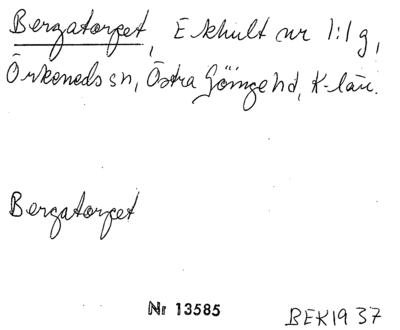 Bergatorpet, Ekhult nr 1:1 g,
Örkeneds sn, Östra Göinge hd, K-län.
Bergatorpet
Nr 13585
BEK 1937